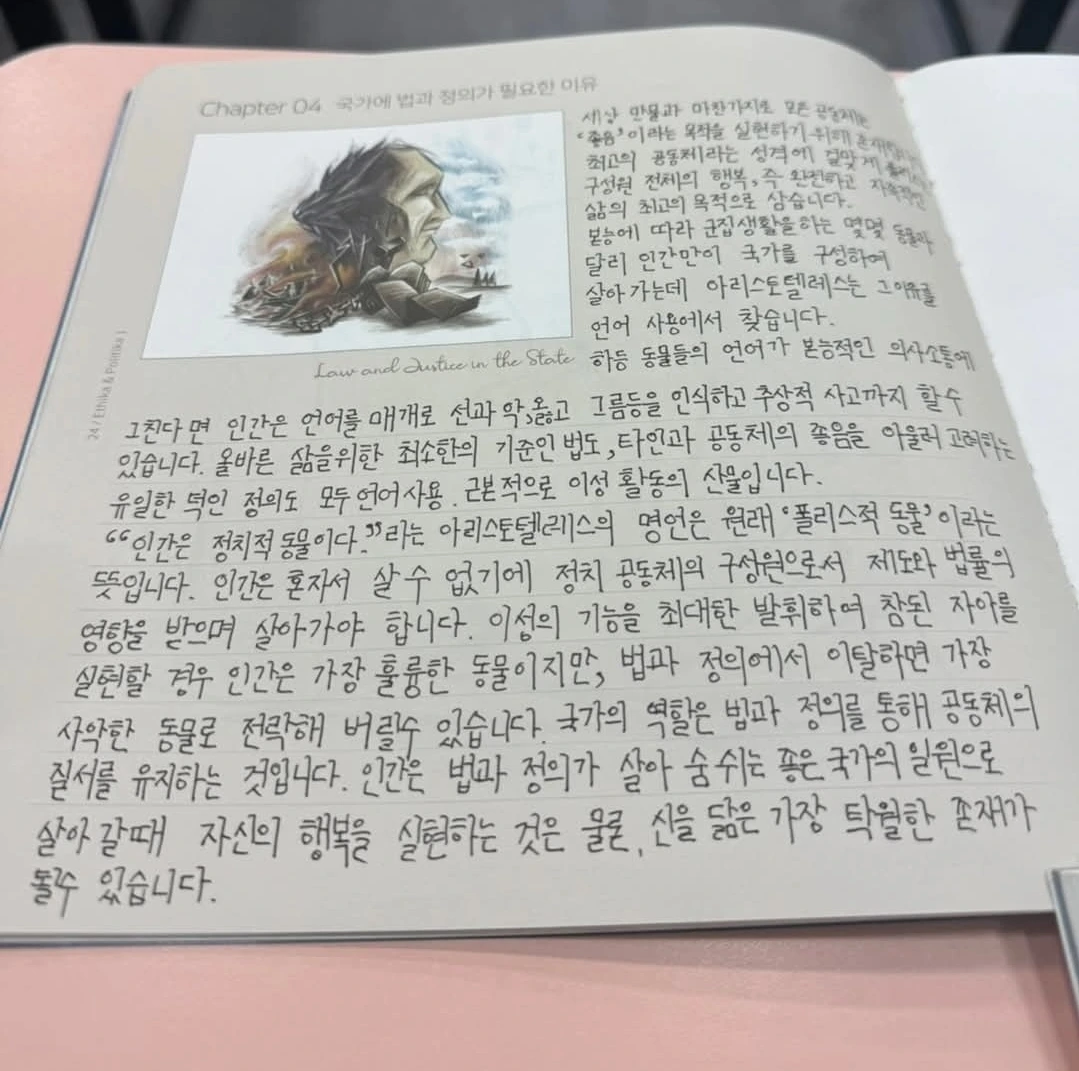 Chapter 04 국가에 법과 정의가 필요한 이유
세상 만물과 마찬가지로 모든 공동체는
'좋음'이라는 목적을 실현하기 위해
최고의 공동체라는 성격에 걸맞게
구성원 전체의 행복, 즉 완전하고 자족적인
삶의 최고의 목적으로 삼습니다.
본능에 따라 군집생활을 하는 몇몇 동물과
달리 인간만이 국가를 구성하여
살아가는데 아리스토텔레스는 그 이유를
언어 사용에서 찾습니다.
하등 동물들의 언어가 본능적인 의사소통에
Law and Justice in the State
24 / Ethika & Politika |
그친다면 인간은 언어를 매개로 선과 악, 옳고 그름등을 인식하고 추상적 사고까지 할 수
있습니다. 올바른 삶을위한 최소한의 기준인 법도, 타인과 공동체의 좋음을 아울러 고려하는
유일한 덕인 정의도 모두 언어사용. 근본적으로 이성 활동의 산물입니다.
"인간은 정치적 동물이다."라는 아리스토텔레스의 명언은 원래 '폴리스적 동물'이라는
뜻입니다. 인간은 혼자서 살 수 없기에 정치 공동체의 구성원으로서 제도와 법률의
영향을 받으며 살아가야 합니다. 이성의 기능을 최대한 발휘하여 참된 자아를
실현할 경우 인간은 가장 훌륭한 동물이지만, 법과 정의에서 이탈하면 가장
사악한 동물로 전락해 버릴수 있습니다. 국가의 역할은 법과 정의를 통해 공동체의
질서를 유지하는 것입니다. 인간은 법과 정의가 살아 숨쉬는 좋은 국가의 일원으로
살아 갈때 자신의 행복을 실현하는 것은 물론, 신을 닮은 가장 탁월한 존재가
될수 있습니다.